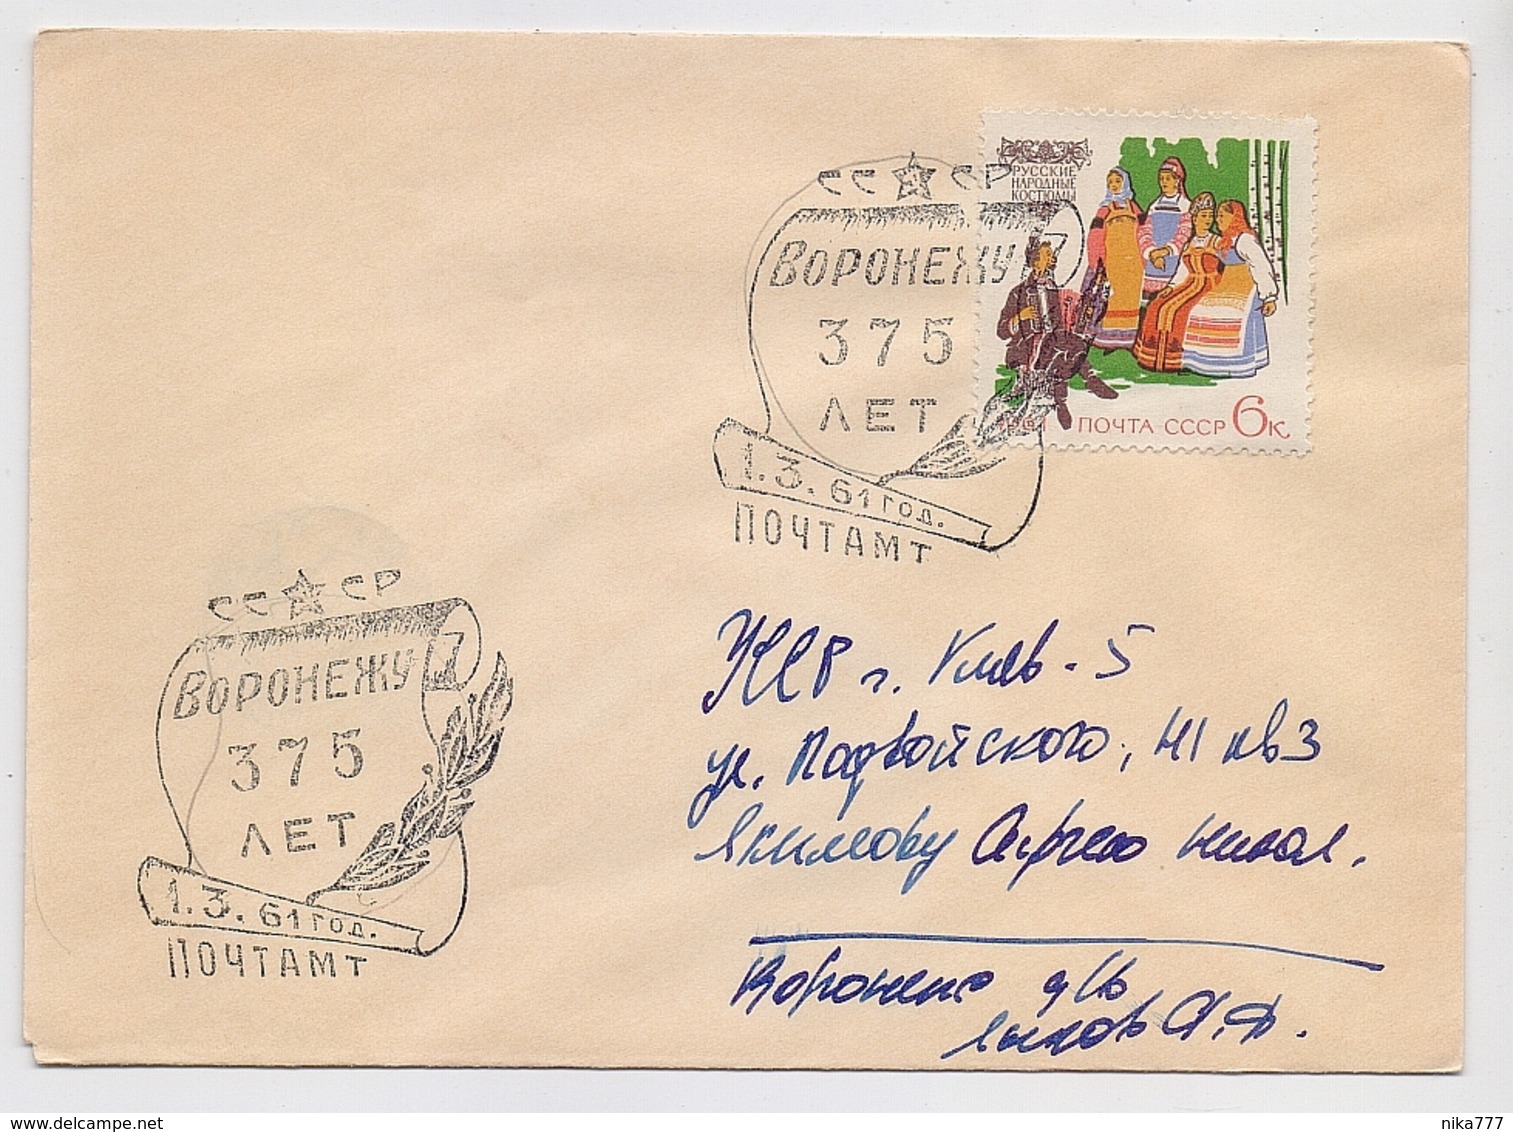 СС СР
ВОРОНЕЖУ
375
ЛЕТ
1.3.61 ГОД.
ПОЧТАМТ
РУССКИЕ
НАРОДНЫЕ
КОСТЮМЫ
1961 ПОЧТА СССР 6к.
СС СР
ВОРОНЕЖУ
375
ЛЕТ
1.3.61 ГОД.
ПОЧТАМТ
г. Киев-5
ул. Подвойского, 41 кв 3
Якимову Сергею Никол.
Воронеж
delcampe.net
nika777